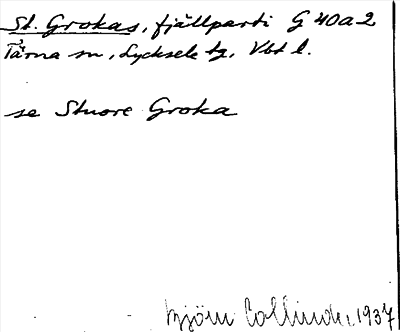 St. Grokas, fjällparti G 40a2
Tärna sn, Lycksele tg, Vbt l.
se Stuore Groka
Björn Collinder, 1937